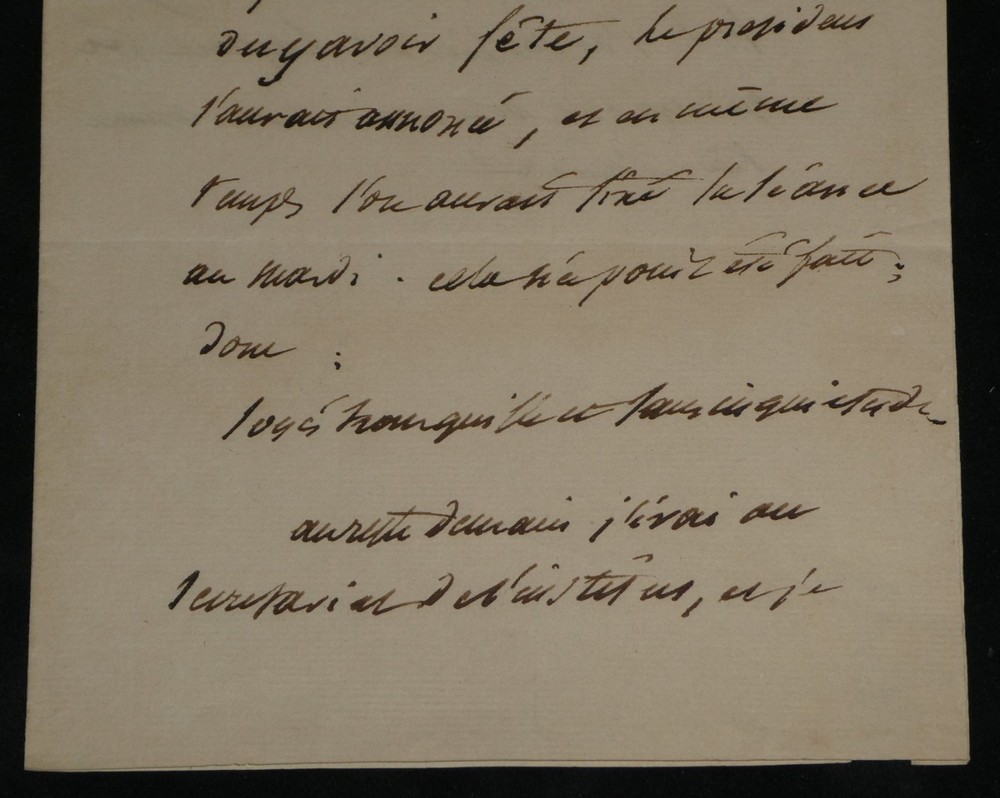 du y avoir fête, le president
l'aurait annoncé, et en même
temps l'on aurait fixé la séance
au mardi. cela n'a point été fait;
donc :
soyés tranquille et sans inquietude.
au reste demain j'irai au
secretariat de l'institut, et je